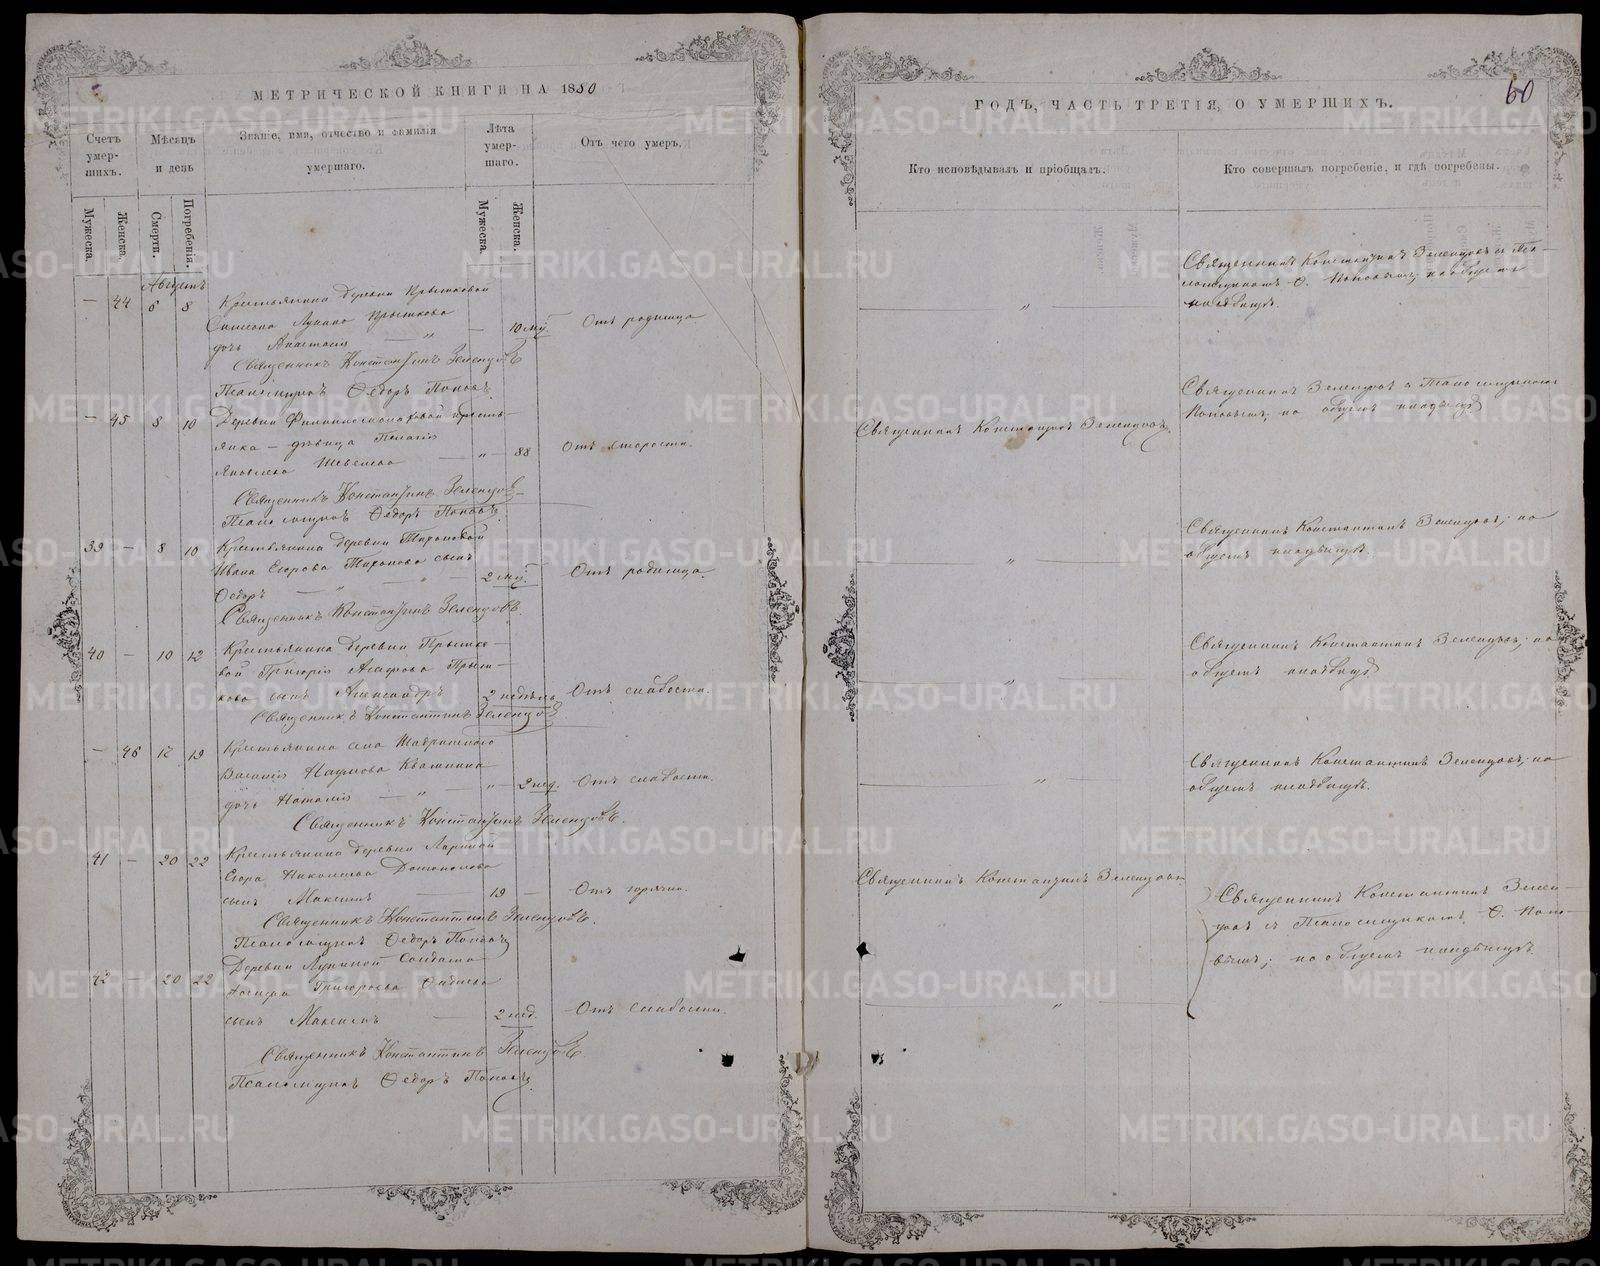 МЕТРИЧЕСКОЙ КНИГИ НА 1880
Счетъ умер-шихъ.
Мѣсяцъ и день
Званіе, имя, отчество и фамилія умершаго.
Лѣта умер-шаго.
Отъ чего умеръ.
Мужеска.
Женска.
Смерти.
Погребенія.
Мужеска.
Женска.
Августъ
— 44 6 8 Крестьянина деревни Прытковой
Симеона Прыткова
дочь Анастасія — „ — 10 мц. Отъ родимца
Священникъ Константинъ Зеленцовъ
Псаломщикъ Ѳедоръ Поповъ.
— 45 8 10 Деревни кресть-
янка – дѣвица Пелагія
Яковлева — „ — 88 Отъ старости.
Священникъ Константинъ Зеленцовъ
Псаломщикъ Ѳедоръ Поповъ.
39 — 8 10 Крестьянина деревни Тихоновой
Ивана Егорова Тихонова сынъ
Ѳедоръ — „ — „ 2 мц. Отъ родимца.
Священникъ Константинъ Зеленцовъ.
40 — 10 12 Крестьянина деревни Прытко-
вой Григорія Агафонова Прыт-
кова сынъ Александръ 2 недѣль Отъ слабости.
Священникъ Константинъ Зеленцовъ
— 46 19 Крестьянина села
Василія Наумова
дочь Наталія — „ — „ — 2 нед. Отъ слабости.
Священникъ Константинъ Зеленцовъ.
41 — 20 22 Крестьянина деревни
Егора Николаева
сынъ Максимъ — 19 — Отъ горячки.
Священникъ Константинъ Зеленцовъ.
Псаломщикъ Ѳедоръ Поповъ
42 — 20 22 Деревни Солдата
Григорьева
сынъ Максимъ — 2 нед. Отъ слабости.
Священникъ Константинъ Зеленцовъ.
Псаломщикъ Ѳедоръ Поповъ.
ГОДЪ, ЧАСТЬ ТРЕТІЯ, О УМЕРШИХЪ.
60
Кто исповѣдывалъ и пріобщалъ.
Кто совершалъ погребеніе, и гдѣ погребены.
Священникъ Константинъ Зеленцовъ съ Пса-
ломщикомъ Ѳ. Поповымъ; на общемъ
кладбищѣ.
„
Священникъ Зеленцовъ съ Псаломщикомъ
Поповымъ, на общемъ кладбищѣ
Священникъ Константинъ Зеленцовъ.
Священникъ Константинъ Зеленцовъ; на
общемъ кладбищѣ.
„
Священникъ Константинъ Зеленцовъ; на
общемъ кладбищѣ
„
Священникъ Константинъ Зеленцовъ; на
общемъ кладбищѣ.
„
Священникъ Константинъ Зеленцовъ
Священникъ Константинъ Зелен-
цовъ съ Псаломщикомъ Ѳ. Попо-
вымъ; на общемъ кладбищѣ.
„
METRIKI.GASO-URAL.RU